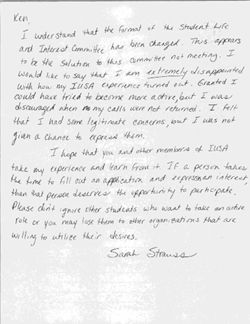 Ken,
I understand that the format of the Student Life
and Interest Committee has been changed. This appears
to be the solution to this committee not meeting. I
would like to say that I am extremely disappointed
with how my IUSA experience turned out. Granted I
could have tried to become more active, but I was
discouraged when my calls were not returned. I felt
that I had some legitimate concerns, but I was not
given a chance to express them.
I hope that you and other members of IUSA
take my experience and learn from it. If a person takes
the time to fill out an application and express an interest,
than that person deserves the opportunity to participate.
Please don't ignore other students who want to take an active
role or you may lose them to other organizations that are
willing to utilize their desires.
Sarah Strauss